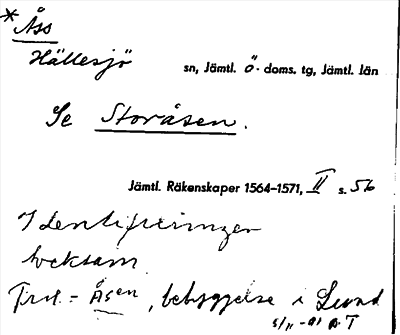 * Åss
Hällesjö sn, Jämtl. Ö. doms. tg, Jämtl. län
Se Storåsen.
Jämtl. Räkenskaper 1564–1571, II s. 56
Identifieringen
tveksam.
Trol. = Åsen, bebyggelse i Lund
5/11 -91